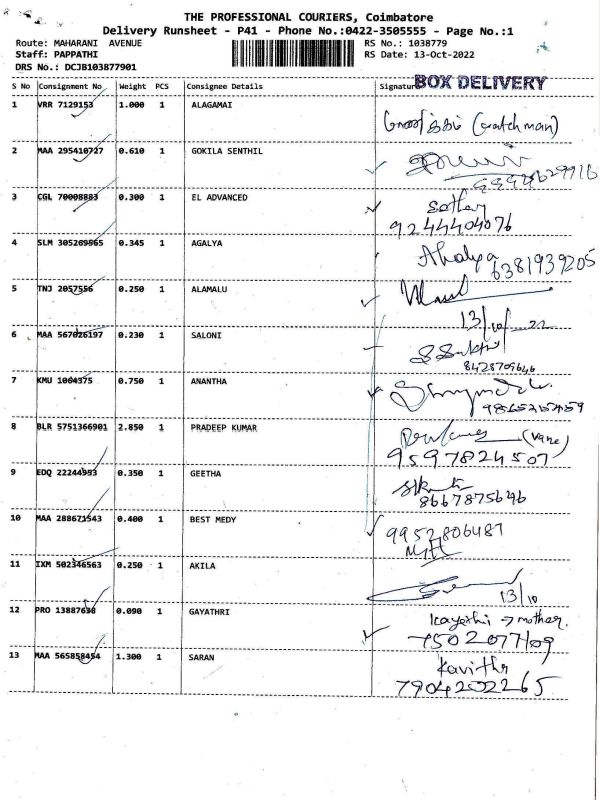 THE PROFESSIONAL COURIERS, Coimbatore
Delivery Runsheet - P41 - Phone No.:0422-3505555 - Page No.:1
Route: MAHARANI AVENUE RS No.: 1038779
Staff: PAPPATHI RS Date: 13-Oct-2022
DRS No.: DCJB103877901
S No Consignment No Weight PCS Consignee Details Signature BOX DELIVERY
1 VRR 7129153 1.000 1 ALAGAMAI
(watchman)
2 MAA 295410727 0.610 1 GOKILA SENTHIL
3 CGL 70008883 0.300 1 EL ADVANCED
9244404076
4 SLM 305269565 0.345 1 AGALYA Ahalya
6381939205
5 TNJ 2057556 0.250 1 ALAMALU
13/10
6 MAA 567026197 0.230 1 SALONI
8428709646
7 KMU 1064375 0.750 1 ANANTHA
8 BLR 5751366901 2.850 1 PRADEEP KUMAR
9597824507
9 EDQ 22244953 0.350 1 GEETHA
8667875646
10 MAA 288671543 0.400 1 BEST MEDY
9952806487
11 IXM 502346563 0.250 1 AKILA
13/10
12 PRO 13887638 0.090 1 GAYATHRI
→ mother.
13 MAA 565858454 1.300 1 SARAN Kavitha
7904202265